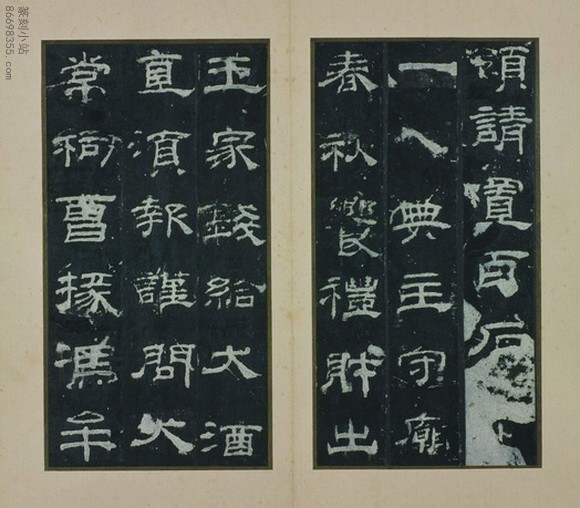 領請置百石
一人典主守廟
春秋饗禮財出
王家錢給大酒
直湏報謹問大
常祠曹掾馮牟
篆刻小站
86698355.com